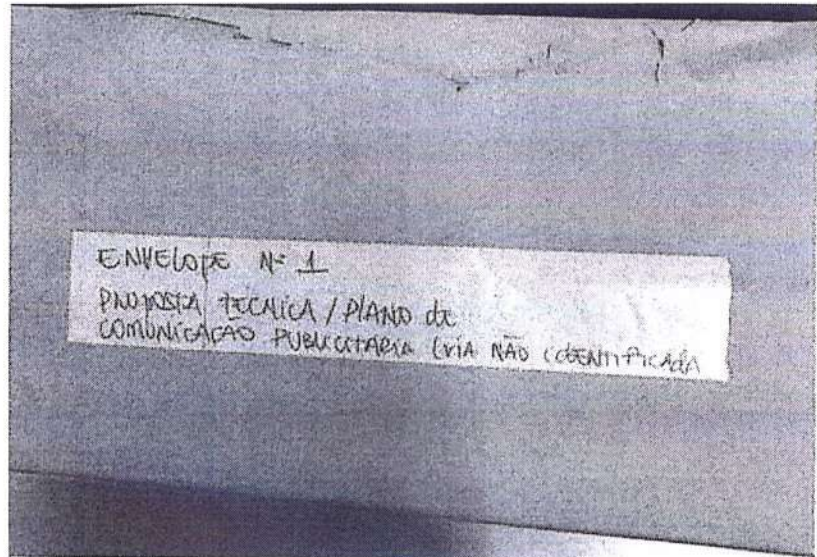 ENVELOPE Nº 1
PROPOSTA TECNICA / PLANO de
COMUNICAÇÃO PUBLICITARIA (VIA NÃO IDENTIFICADA